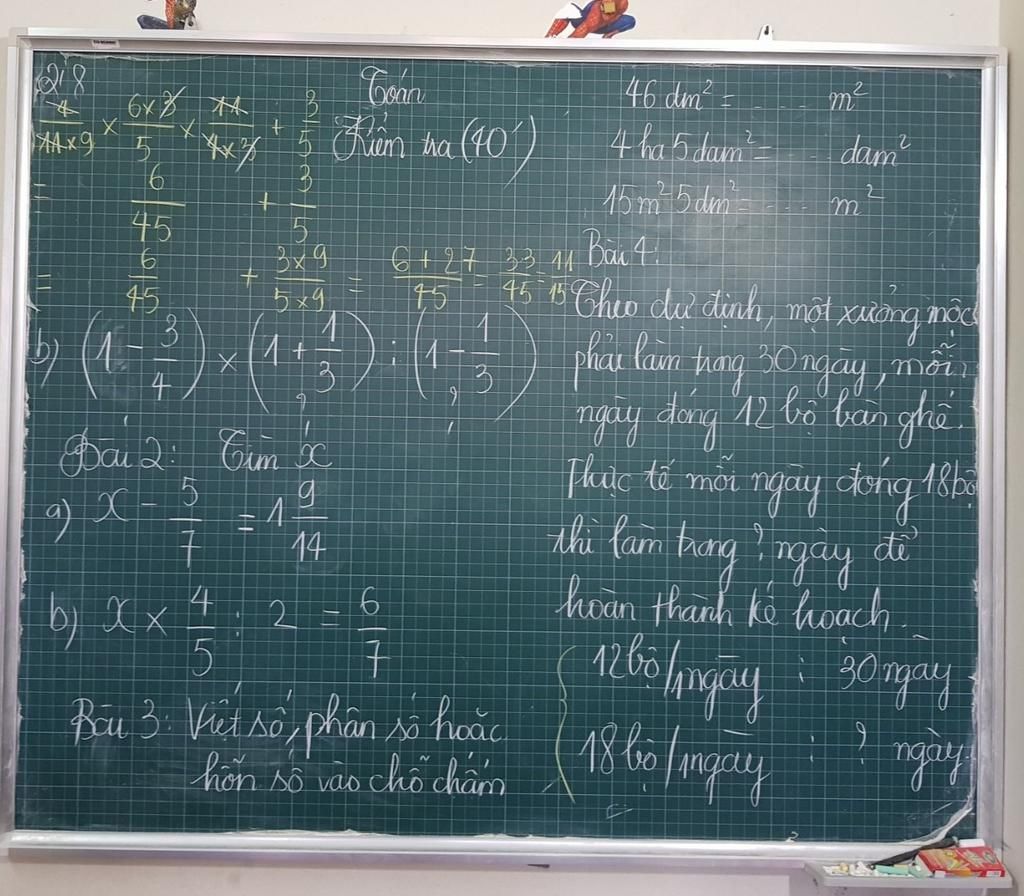 2/8 Toán
4/(11 x 9) x (6 x 3)/5 x 11/(4 x 3) + 3/5 Kiểm tra (40')
= 6/45 + 3/5
= 6/45 + (3 x 9)/(5 x 9) = (6 + 27)/45 = 33/45 = 11/15
b) (1 - 3/4) x (1 + 1/3) : (1 - 1/3)
Bài 2: Tìm x
a) x - 5/7 = 1 9/14
b) x x 4/5 : 2 = 6/7
Bài 3: Viết số, phân số hoặc
hỗn số vào chỗ chấm
46 dm² = ..... m²
4 ha 5 dam² = ..... dam²
15 m² 5 dm² = ..... m²
Bài 4:
Theo dự định, một xưởng mộc
phải làm trong 30 ngày, mỗi
ngày đóng 12 bộ bàn ghế.
Thực tế mỗi ngày đóng 18 bộ
thì làm trong ? ngày để
hoàn thành kế hoạch.
12 bộ/1 ngày : 30 ngày
18 bộ/1 ngày : ? ngày